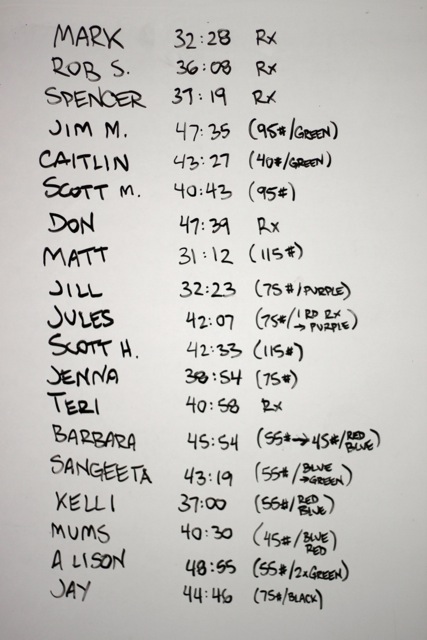 MARK 32:28 Rx
ROB S. 36:08 Rx
SPENCER 37:19 Rx
JIM M. 47:35 (95#/GREEN)
CAITLIN 43:27 (40#/GREEN)
SCOTT M. 40:43 (95#)
DON 47:39 Rx
MATT 31:12 (115#)
JILL 32:23 (75#/PURPLE)
JULES 42:07 (75#/1 RD RX → PURPLE)
SCOTT H. 42:33 (115#)
JENNA 38:54 (75#)
TERI 40:58 Rx
BARBARA 45:54 (55#→45#/RED BLUE)
SANGEETA 43:19 (55#/BLUE →GREEN)
KELLI 37:00 (55#/RED BLUE)
MUMS 40:30 (45#/BLUE RED)
ALISON 48:55 (55#/2xGREEN)
JAY 44:46 (75#/BLACK)